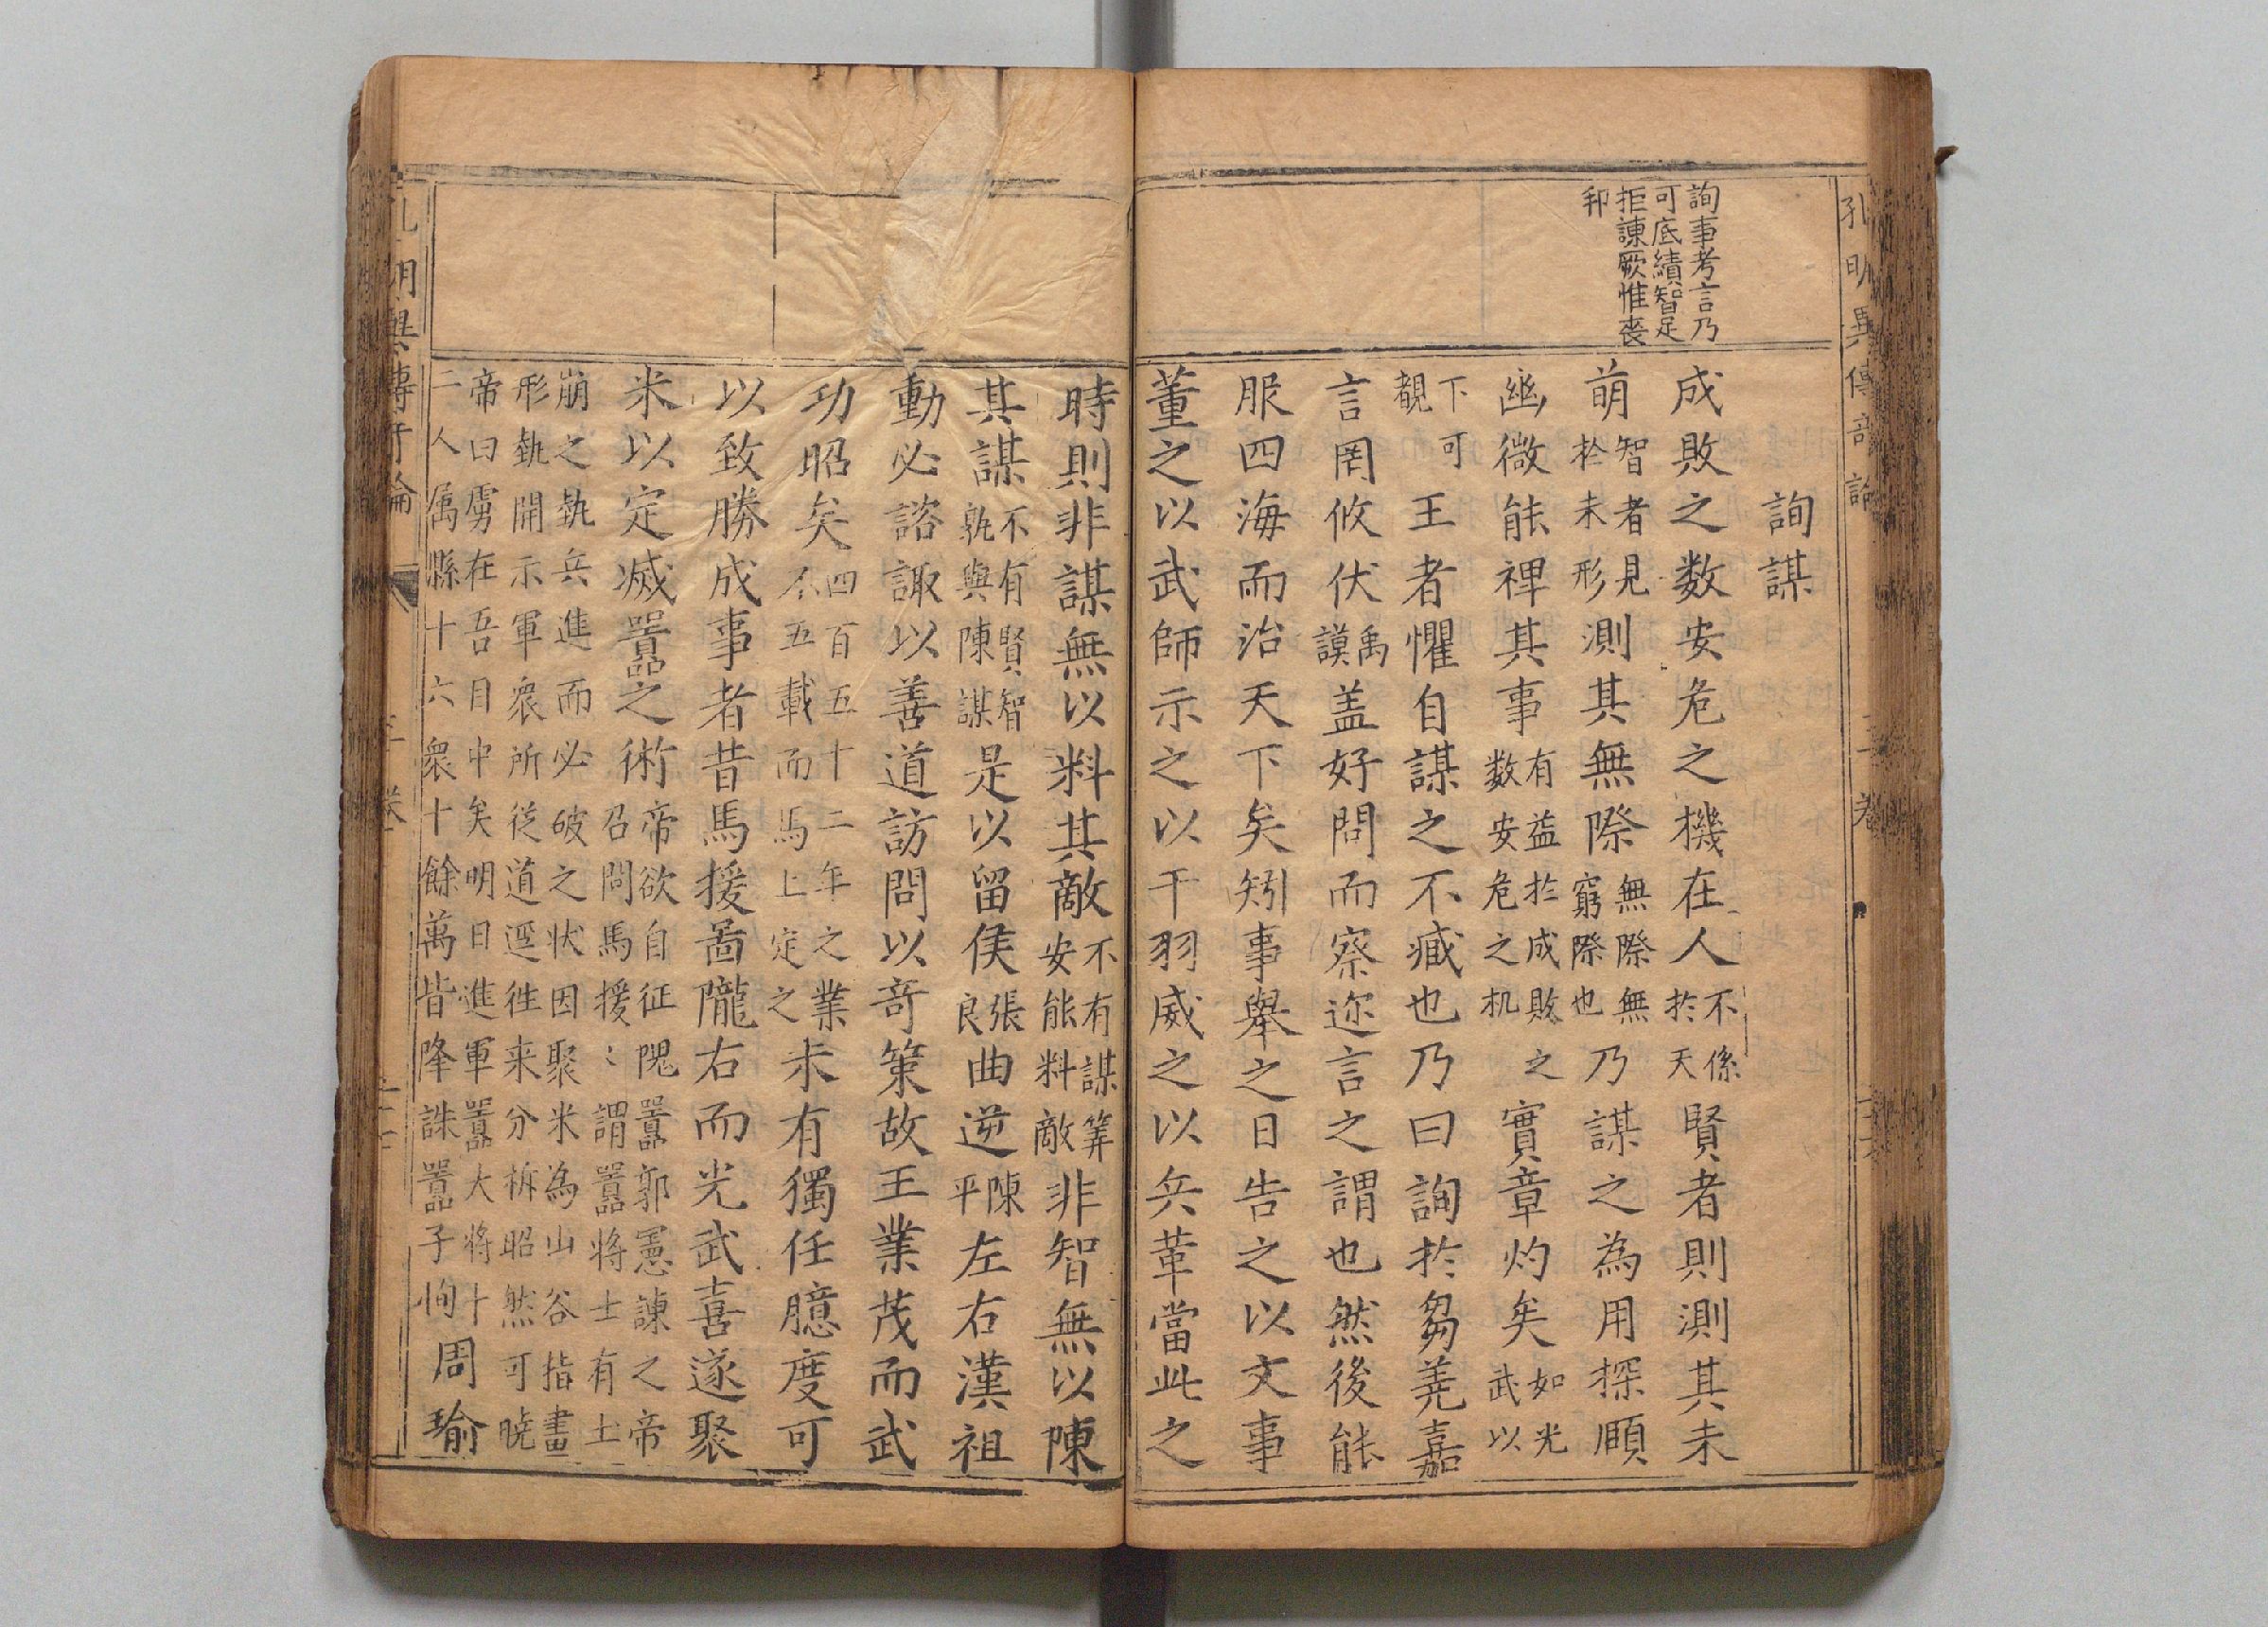 詢事考言乃
可底績智足
拒諫厥惟喪
邦
詢謀
成敗之数安危之機在人不係於天賢者則測其未
萌智者見於未形測其無際無際無窮際也乃謀之為用探賾
幽微能裨其事有益於成敗之数安危之机實章灼矣如光武以
下可覩王者懼自謀之不臧也乃曰詢於芻蕘嘉
言罔攸伏禹謨盖好問而察迩言之謂也然後能
服四海而治天下矣矧事舉之日告之以文事
董之以武師示之以干羽威之以兵革當此之
時則非謀無以料其敵不有謀筭安能料敵非智無以陳
其謀不有賢智孰與陳謀是以留侯張良曲逆陳平左右漢祖
動必諮諏以善道訪問以奇策故王業茂而武
功昭矣四百五十二年之業不五載而馬上定之未有獨任臆度可
以致勝成事者昔馬援啚隴右而光武喜遂聚
米以定滅囂之術帝欲自征隗囂郭憲諫之帝召問馬援〻謂囂将士有土
崩之執兵進而必破之状因聚米為山谷指畫
形執開示軍衆所從道逕徃来分柝昭然可曉
帝曰虜在吾目中矣明日進軍囂大将十
二人属縣十六衆十餘萬皆降誅囂子恂周瑜